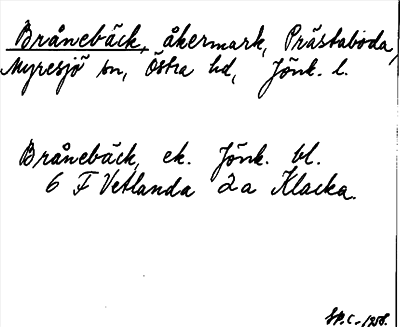 Brånebäck, åkermark, Prästaboda,
Myresjö sn, Östra hd, Jönk. l.
Brånebäck, ek. Jönk. bl.
6 F Vetlanda 2a Klacka.